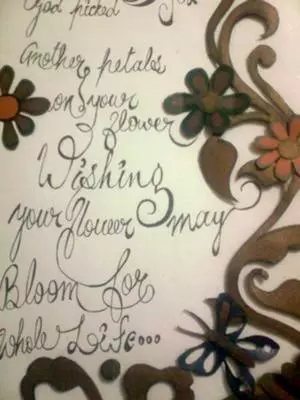 God picked
Another petales
on your
flower
Wishing
your flower may
Bloom for
whole Life...